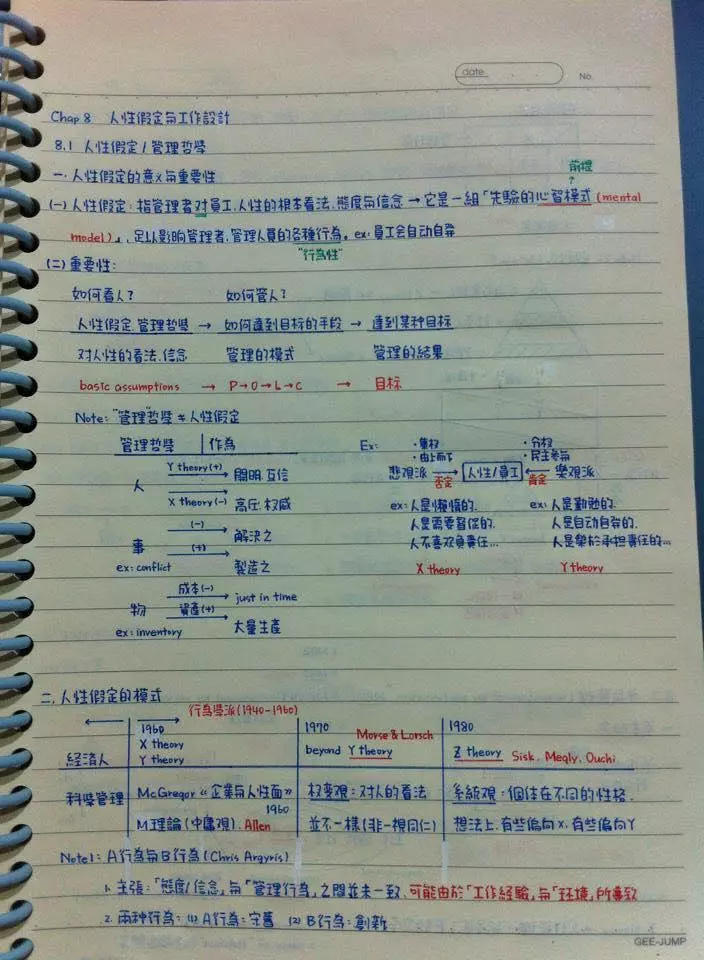 date
No.
Chap 8 人性假定與工作設計
8.1 人性假定/管理哲學
一. 人性假定的意义與重要性
前提
?
(一) 人性假定: 指管理者对員工.人性的根本看法.態度與信念 → 它是一組「先驗的心智模式 (mental
model)」, 足以影响管理者.管理人員的各種行為。ex: 員工会自动自発
"行為性"
(二) 重要性:
如何看人? 如何管人?
人性假定.管理哲學 → 如何達到目标的手段 → 達到某种目标
对人性的看法.信念 管理的模式 管理的結果
basic assumptions → P→O→L→C → 目标
Note: "管理"哲學 ≠ 人性假定
管理哲學 作為 Ex: ・集权 ・分权
・由上而下 ・民主参與
人 Y theory (+) 開明.互信 悲观派 → 人性/員工 ← 樂观派
否定 肯定
X theory (-) 高圧.权威 ex: 人是懶惰的. ex: 人是勤勉的.
(-) 解決之 人是需要督促的. 人是自动自発的.
事 (+) 人不喜欢負責任… 人是樂於承担責任的…
ex: conflict 製造之 X theory Y theory
物 成本(-) just in time
資產(+)
ex: inventory 大量生產
二. 人性假定的模式
行為學派 (1940-1960)
1960 1970 1980
X theory Morse & Lorsch
経済人 Y theory beyond Y theory Z theory Sisk, Megly, Ouchi
科學管理 McGregor《企業與人性面》 权变观: 对人的看法 系統观: 個体在不同的性格.
1960
M理論 (中庸观). Allen 並不一樣(非一視同仁) 想法上. 有些偏向X. 有些偏向Y
Note1: A行為與B行為 (Chris Argyris)
1. 主張:「態度/信念」與「管理行為」之間並未一致. 可能由於「工作経驗」與「环境」所導致
2. 兩种行為: (1) A行為: 守舊 (2) B行為: 創新
GEE-JUMP